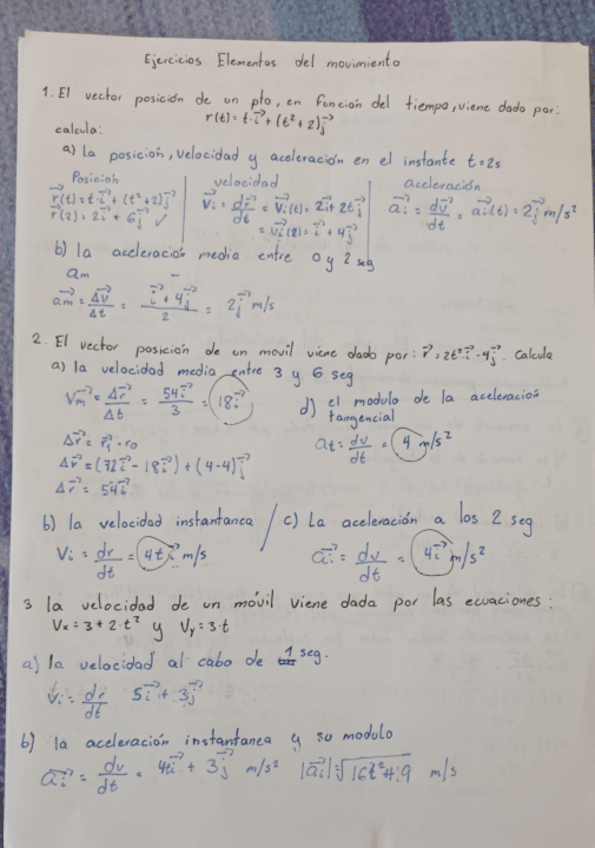 Ejercicios Elementos del movimiento
1. El vector posición de un pto, en función del tiempo, viene dado por:
r(t) = t·i⃗ + (t² + 2)j⃗
calcula:
a) la posición, velocidad y aceleración en el instante t=2s
Posición
r⃗(t) = t·i⃗ + (t² + 2)j⃗
r⃗(2) = 2i⃗ + 6j⃗ ✓
velocidad
v⃗i = dr⃗/dt = v⃗i(t) = 2i⃗ + 2t j⃗
= v⃗i(2) = i⃗ + 4j⃗
aceleración
a⃗i = dv⃗/dt = a⃗i(t) = 2j⃗ m/s²
b) la aceleración media entre 0 y 2 seg
am
a⃗m = Δv⃗/Δt = (i⃗ + 4j⃗)/2 = 2j⃗ m/s
2. El vector posición de un movil viene dado por: r⃗ = 2t² i⃗ - 4j⃗. Calcula
a) la velocidad media entre 3 y 6 seg
V⃗m = Δr⃗/Δt = 54i⃗/3 = 18i⃗
Δr⃗ = r⃗1 - r0
Δr⃗ = (72i⃗ - 18i⃗) + (4-4)j⃗
Δr⃗ = 54i⃗
d) el modulo de la aceleración
tangencial
at = dv/dt = 4 m/s²
b) la velocidad instantanea
Vi = dr/dt = 4t i⃗ m/s
c) La aceleración a los 2 seg
a⃗i = dv/dt = 4i⃗ m/s²
3 la velocidad de un móvil viene dada por las ecuaciones:
Vx = 3 + 2·t² y Vy = 3·t
a) la velocidad al cabo de 1 seg.
Vi = dr/dt 5i⃗ + 3j⃗
b) la aceleración instantanea y su modulo
a⃗i = dv/dt = 4ti⃗ + 3j⃗ m/s² |a⃗i| = √16t² + 9 m/s